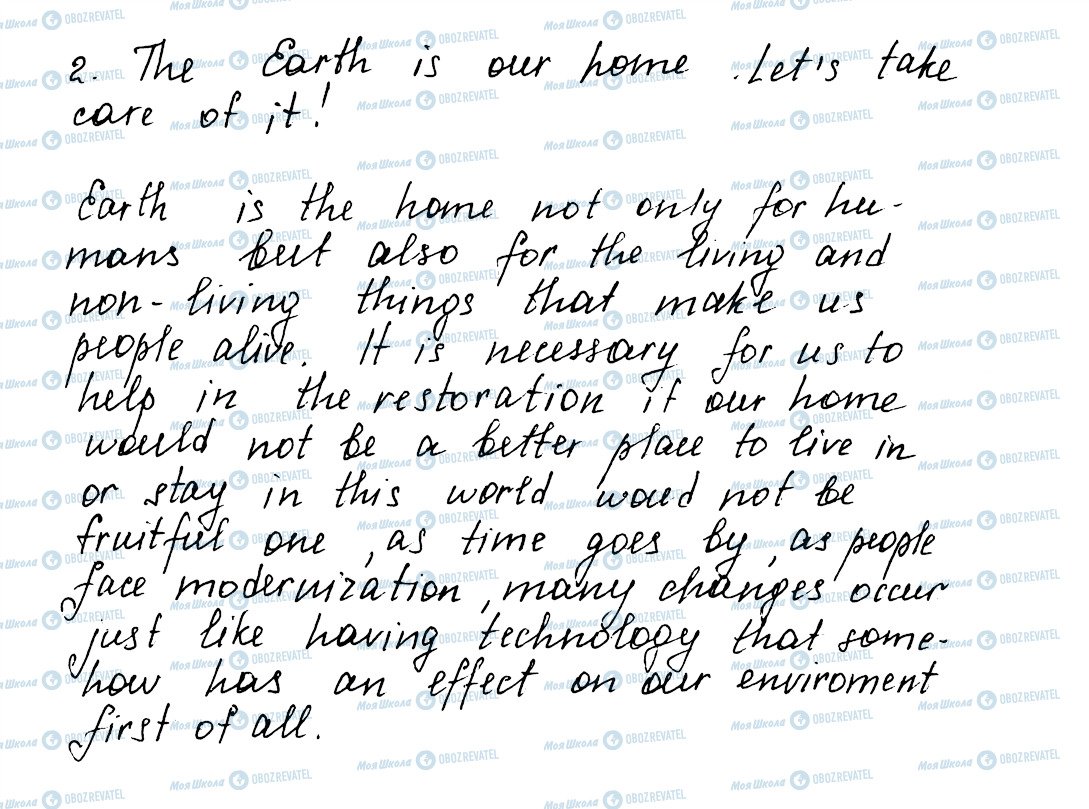 2. The Earth is our home. Let's take
care of it!
Earth is the home not only for hu-
mans but also for the living and
non-living things that make us
people alive. It is necessary for us to
help in the restoration if our home
would not be a better place to live in
or stay in this world woud not be
fruitful one, as time goes by, as people
face modernization, many changes occur
just like having technology that some-
how has an effect on our enviroment
first of all.
МояШкола OBOZREVATEL